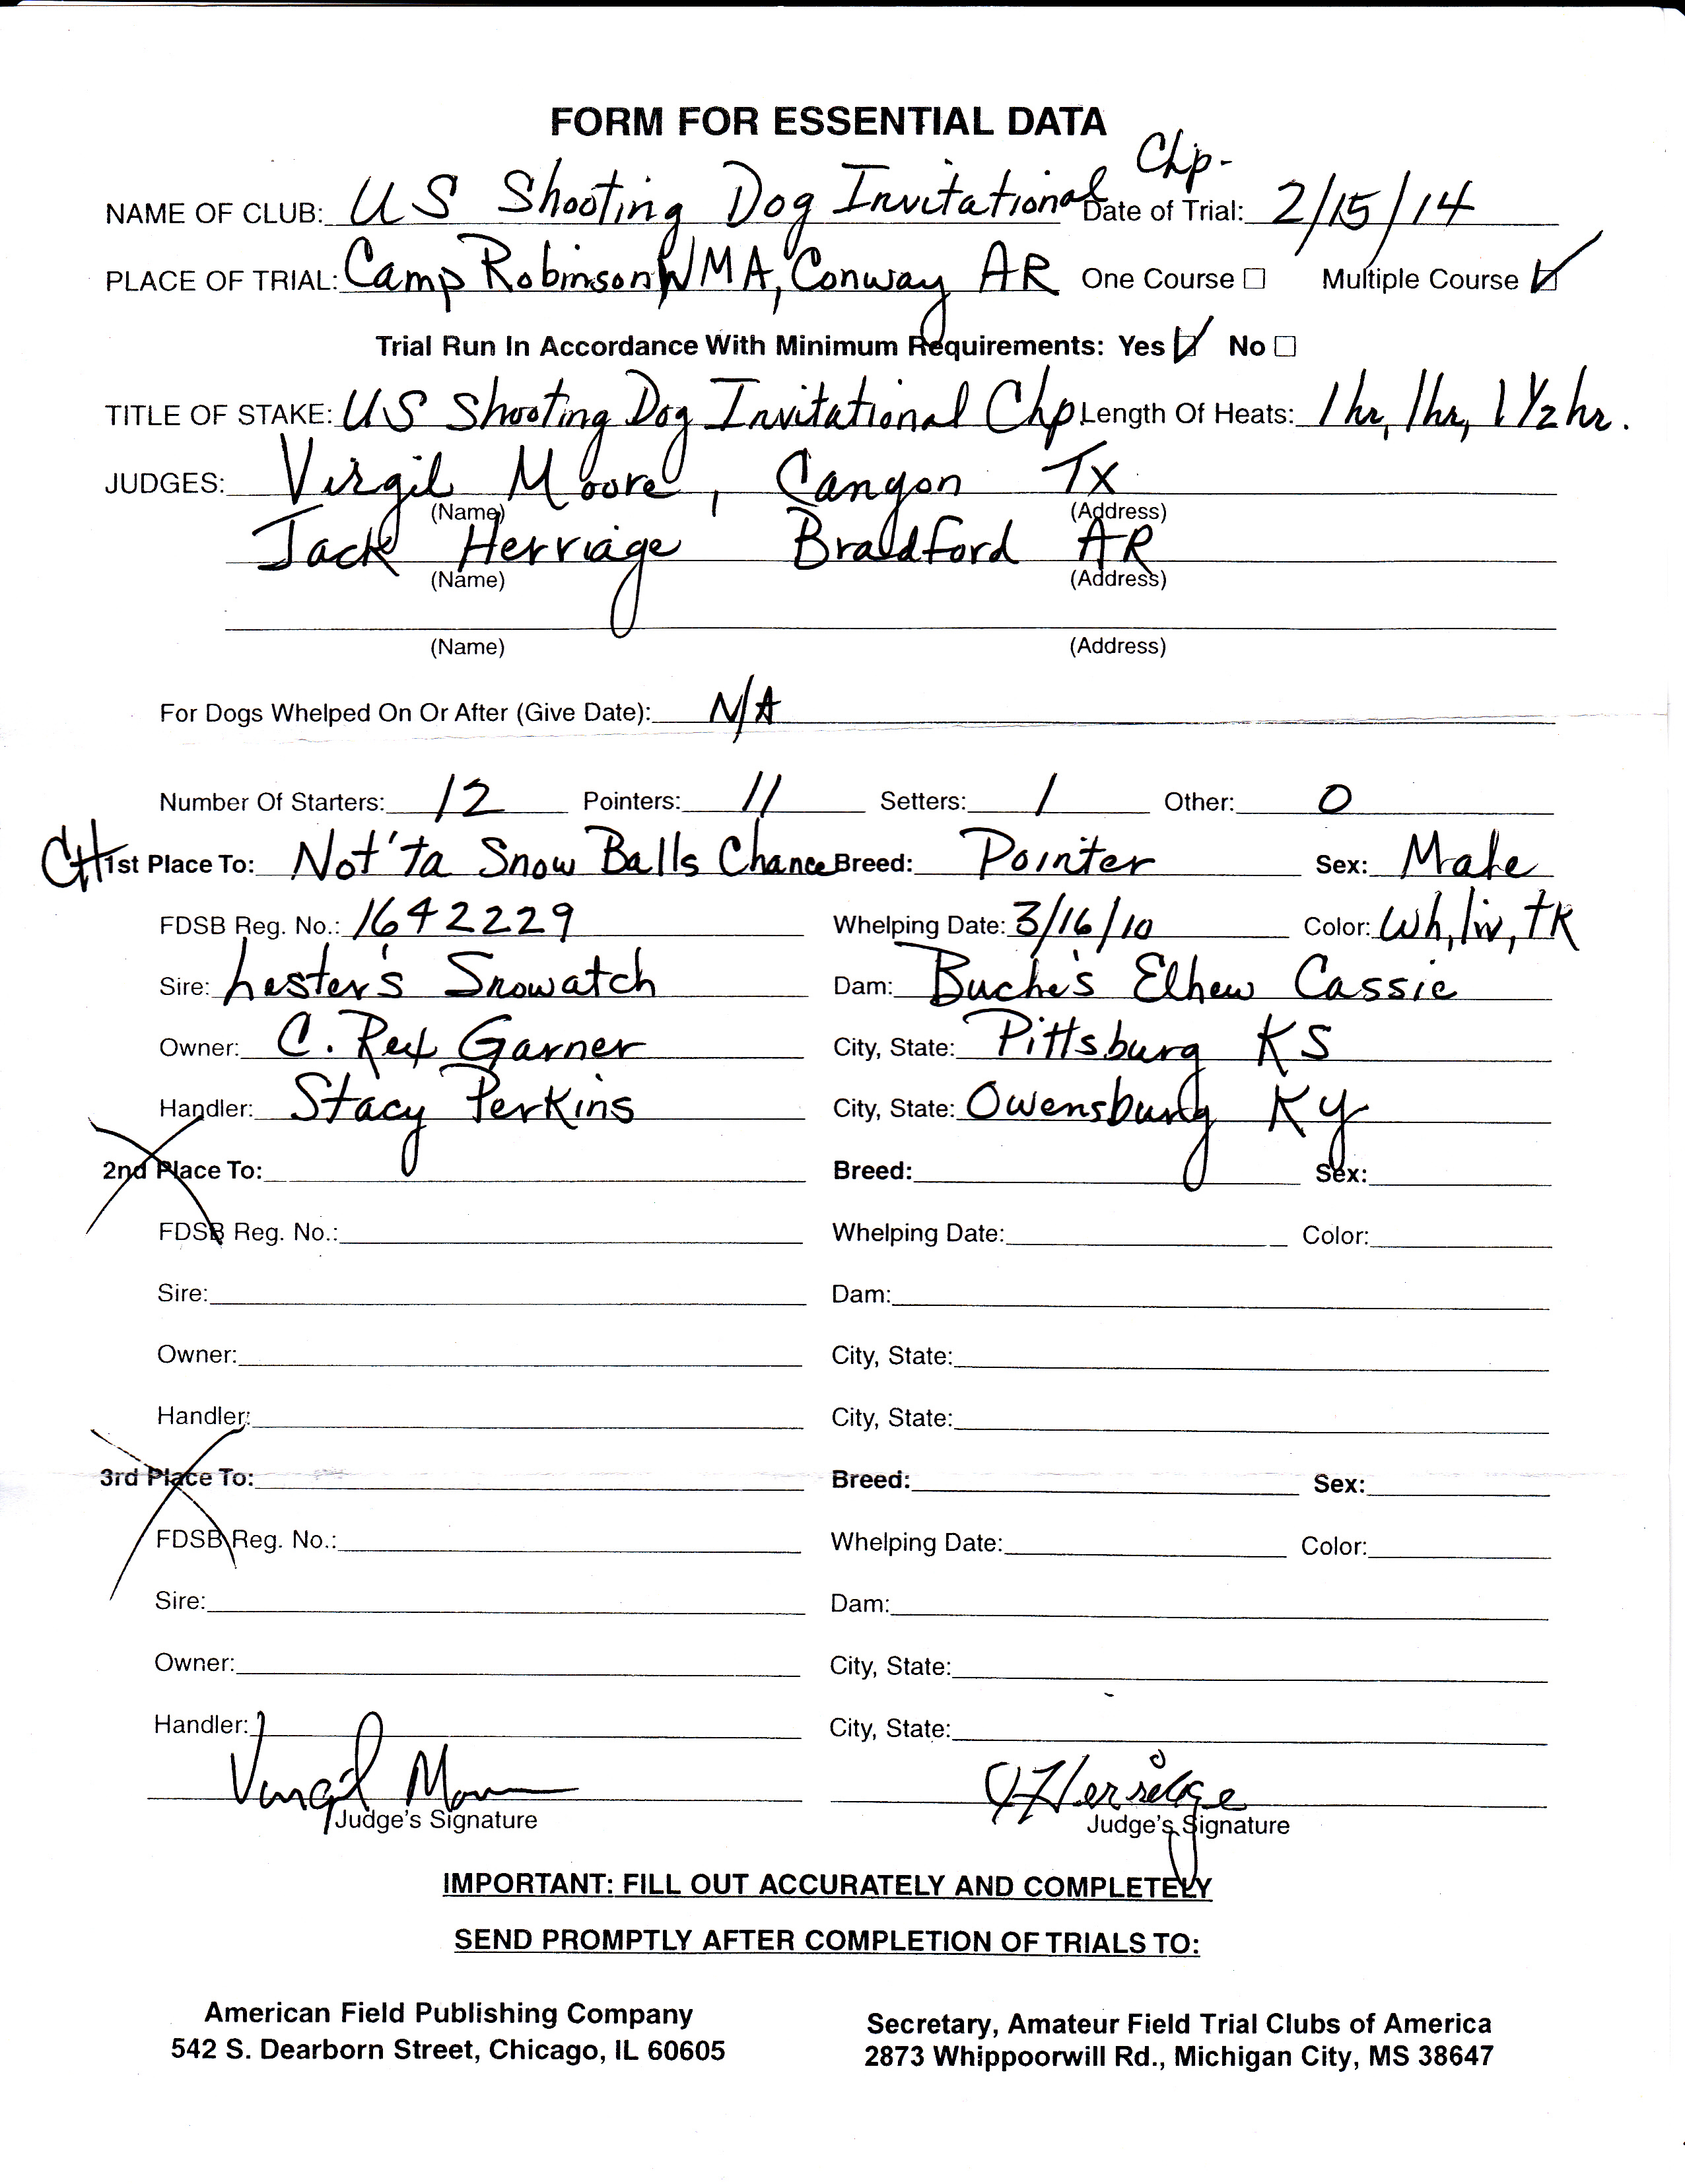 FORM FOR ESSENTIAL DATA
Chp-
NAME OF CLUB: US Shooting Dog Invitational Date of Trial: 2/15/14
PLACE OF TRIAL: Camp Robinson WMA, Conway AR One Course ☐ Multiple Course ☑
Trial Run In Accordance With Minimum Requirements: Yes ☑ No ☐
TITLE OF STAKE: US Shooting Dog Invitational Chp Length Of Heats: 1 hr, 1hr, 1 1/2 hr.
JUDGES: Virgil Moore, Canyon TX
(Name) (Address)
Jack Herriage Bradford AR
(Name) (Address)
(Name) (Address)
For Dogs Whelped On Or After (Give Date): N/A
Number Of Starters: 12 Pointers: 11 Setters: 1 Other: 0
CH 1st Place To: Not'ta Snow Balls Chance Breed: Pointer Sex: Male
FDSB Reg. No.: 1642229 Whelping Date: 3/16/10 Color: Wh, liv, TK
Sire: Lester's Snowatch Dam: Buche's Elhew Cassie
Owner: C. Rex Garner City, State: Pittsburg KS
Handler: Stacy Perkins City, State: Owensburg Ky
2nd Place To: Breed: Sex:
FDSB Reg. No.: Whelping Date: Color:
Sire: Dam:
Owner: City, State:
Handler: City, State:
3rd Place To: Breed: Sex:
FDSB Reg. No.: Whelping Date: Color:
Sire: Dam:
Owner: City, State:
Handler: City, State:
Virgil Moore J Herriage
Judge's Signature Judge's Signature
IMPORTANT: FILL OUT ACCURATELY AND COMPLETELY
SEND PROMPTLY AFTER COMPLETION OF TRIALS TO:
American Field Publishing Company
542 S. Dearborn Street, Chicago, IL 60605
Secretary, Amateur Field Trial Clubs of America
2873 Whippoorwill Rd., Michigan City, MS 38647